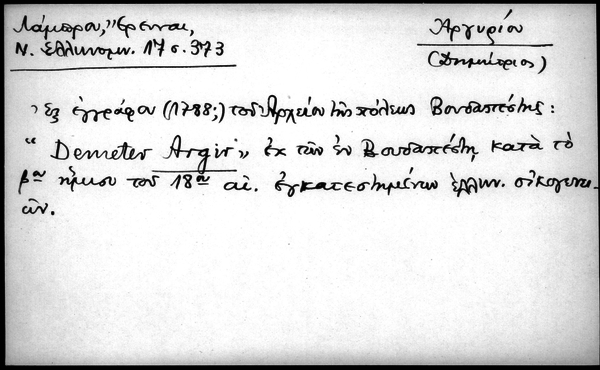 Λάμπρου, "Ἔρευναι,
Ν. Ἑλληνομν. 17 σ. 373
Ἀργυρίου
(Δημήτριος)
Ἐξ ἐγγράφου (1788;) τοῦ Ἀρχείου τῆς πόλεως Βουδαπέστης:
"Demeter Argir" ἐκ τῶν ἐν Βουδαπέστῃ κατὰ τὸ
βον ἥμισυ τοῦ 18ου αἰ. ἐγκατεστημένων ἑλλην. οἰκογενει-
ῶν.